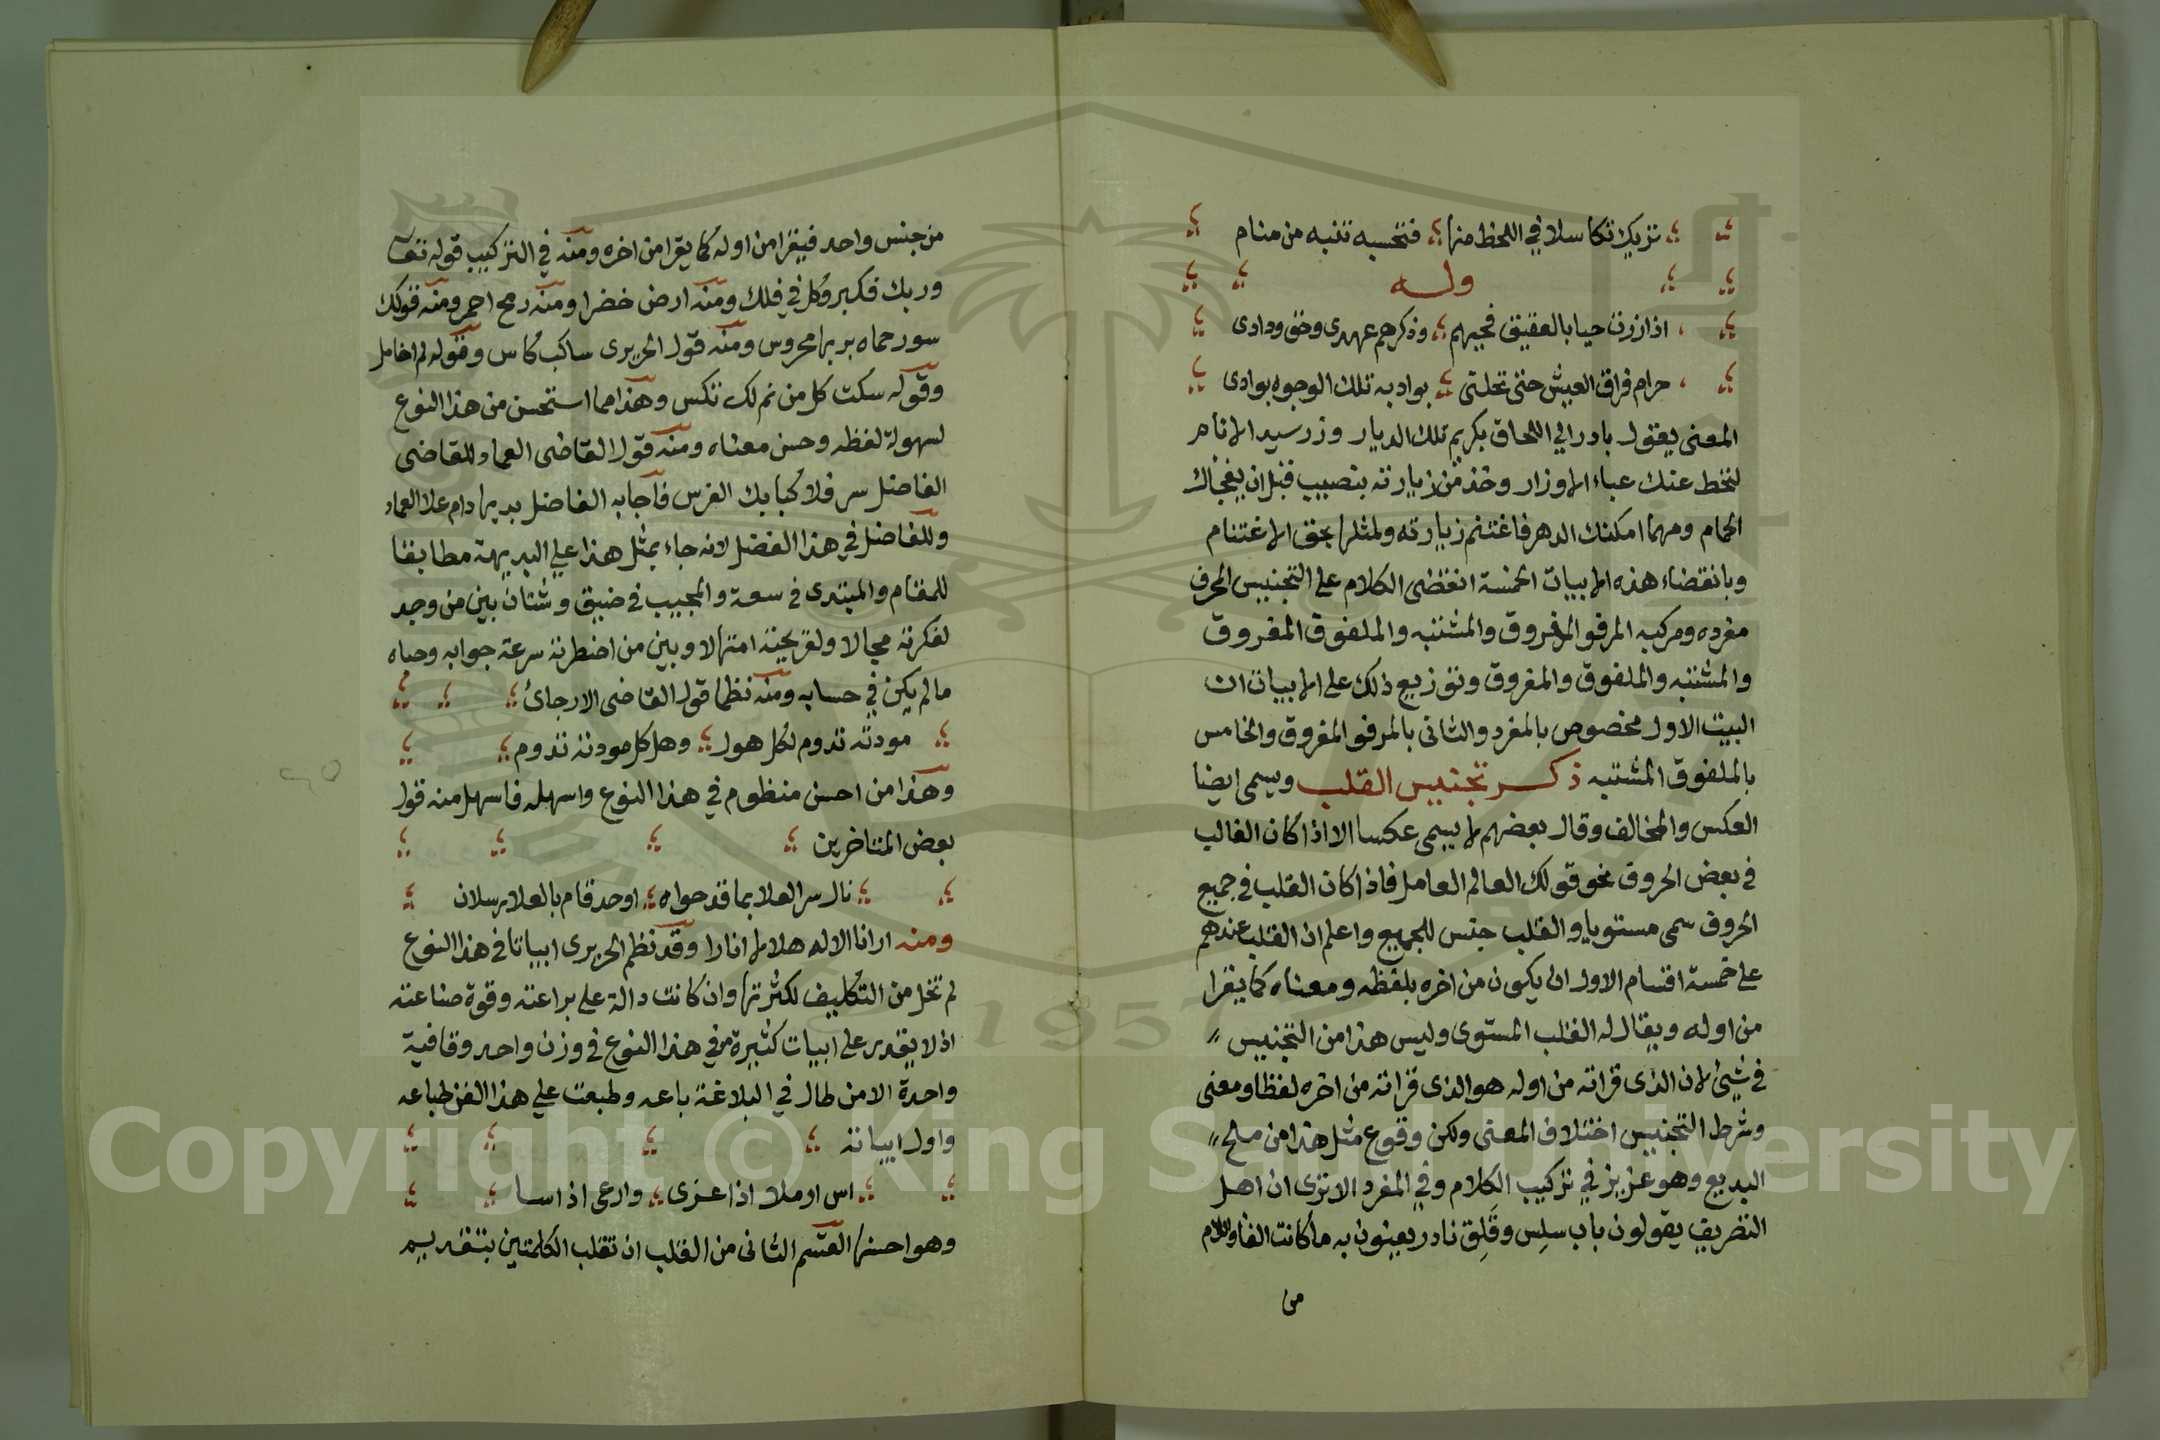 تريك تكاسلا في اللحظ منها فتحسبه تنبه من منام
وله
اذا زرت حيا بالعقيق فحيهم وذكرهم عهدي وحق ودادى
حرام فراق العيش حتى تحلتى بواد به تلك الوجوه بوادى
المعنى يقول بادر الى اللحاق بكريم تلك الديار وزر سيد الانام
لتحط عنك عباء الاوزار وخذ من زيارته بنصيب قبل ان يفجأك
الحمام ومهما امكنك الدهر فاغتنم زيارته ولمثلها يحق الاغتنام
وبانقضاء هذه الابيات الخمسة انقضى الكلام على التجنيس المحرف
مفرده ومركبه المرفو المفروق والمشتبه والملفوق المفروق
والمشتبه والملفوق والمفروق وتوزيع ذلك على الابيات ان
البيت الاول مخصوص بالمفرد والثانى بالمرفو المفروق والخامس
بالملفوق المشتبه ذكر تجنيس القلب ويسمى ايضا
العكس والمخالف وقال بعضهم لا يسمى عكسا الا اذا كان القالب
في بعض الحروف نحو قولك العالم العامل فاذا كان القلب في جميع
الحروف سمى مستويا والقلب جنس للجميع واعلم ان القلب عندهم
على خمسة اقسام الاول ان يكون من اخره بلفظه ومعناه كما يقرا
من اوله ويقال له القلب المستوى وليس هذا من التجنيس
في شيئ لان الذى قراته من اوله هو الذى قراته من اخره لفظا ومعنى
وشرط التجنيس اختلاف المعنى ولكن وقوع مثل هذا من ملح
البديع وهو عزيز في تركيب الكلام وفي المفرد الا ترى ان اهل
التصريف يقولون باب سلس وقلق نادر يعنون به ما كانت الفا واللام
من
من جنس واحد فيقرا من اوله كما يقرا من اخره ومنه في التركيب قوله تعالى
وربك فكبر وكل في فلك ومنه ارض خضرا ومنه رمح احمر ومنه قولك
سور حماه بربها محروس ومنه قول الحريرى ساكب كاس وقوله لم اخامل
وقوله سكت كل من نم لك تكس وهذا مما استحسن من هذا النوع
لسهولة لفظه وحسن معناه ومنه قول القاضى العماد للقاضى
الفاضل سر فلا كبا بك الفرس فاجابه الفاضل بديها دام علا العماد
وللفاضل في هذا الفضل لانه جاء بمثل هذا على البديهة مطابقا
للمقام والمبتدى في سعة والمجيب في ضيق وشتان بين من وجد
لفكرته مجالا ولقريحته امتهالا وبين من اضطرته سرعة جوابه وحباه
مالم يكن في حسابه ومنه نظما قول القاضى الارجائ
مودته تدوم لكل هول وهل كل مودته تدوم
وهذا من احسن منظوم في هذا النوع واسهله فاسهل منه قول
بعض المتاخرين
نال سر العلا بما قد حواه اوحد قام بالعلا رسلان
ومنه ارانا الاله هلالا انارا وقد نظم الحريرى ابياتا في هذا النوع
لم تخل من التكليف لكثرتها وان كانت دالة على براعته وقوة صناعته
اذ لا يقدر على ابيات كثيرة في هذا النوع في وزن واحد وقافية
واحدة الا من طال في البلاغة باعه وطبعت على هذا الفن طباعه
واول ابياته
اس ارملا اذا عرى وارعى اذا اسا
وهو احسنها القسم الثانى من القلب ان تقلب الكلمتين بتقديم
Copyright © King Saud University
1957